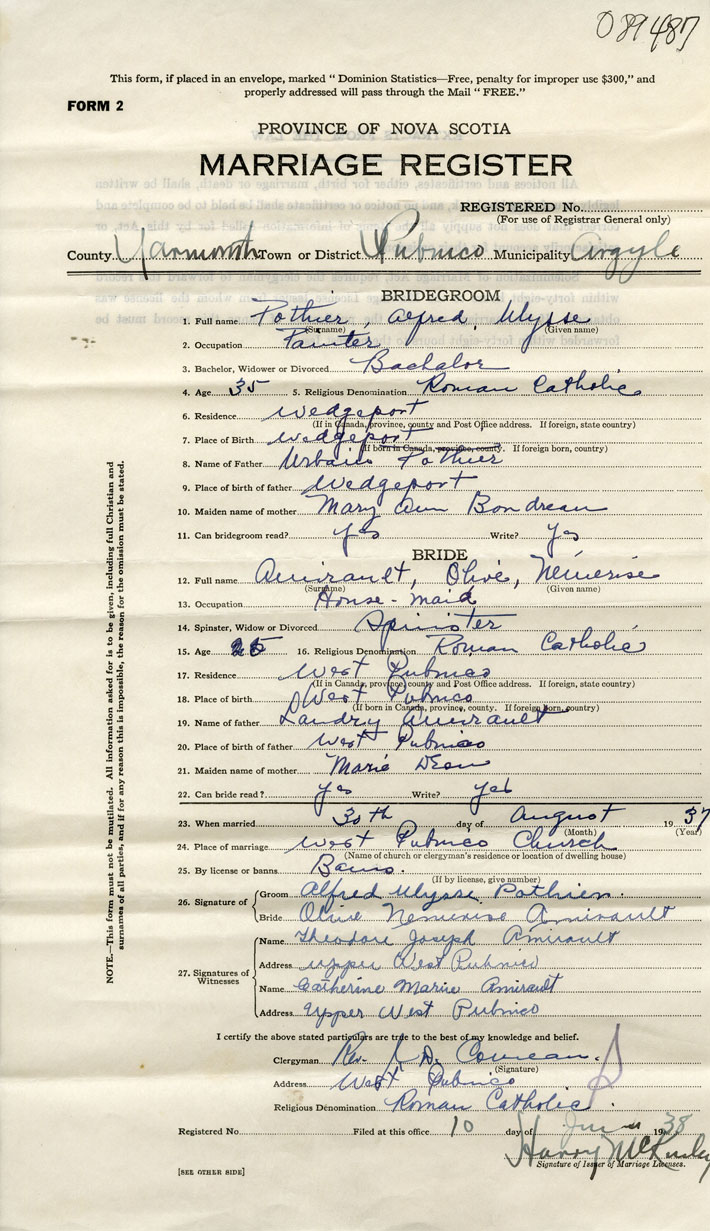 089487
This form, if placed in an envelope, marked “ Dominion Statistics—Free, penalty for improper use $300,” and
properly addressed will pass through the Mail “ FREE.”
FORM 2
PROVINCE OF NOVA SCOTIA
MARRIAGE REGISTER
REGISTERED No.
(For use of Registrar General only)
County Yarmouth Town or District W Pubnico Municipality Argyle
BRIDEGROOM
1. Full name Pothier, Alfred, Ulysse
(Surname) (Given name)
2. Occupation Painter
3. Bachelor, Widower or Divorced Bachelor
4. Age 35 5. Religious Denomination Roman Catholic
6. Residence Wedgeport
(If in Canada, province, county and Post Office address. If foreign, state country)
7. Place of Birth Wedgeport
(If born in Canada, province, county. If foreign born, country)
8. Name of Father Urbain Pothier
9. Place of birth of father Wedgeport
10. Maiden name of mother Mary Ann Boudreau
11. Can bridegroom read? yes Write? Yes
BRIDE
12. Full name Amirault, Olive, Némerise
(Surname) (Given name)
13. Occupation House-maid
14. Spinster, Widow or Divorced Spinster
15. Age 25 16. Religious Denomination Roman Catholic
17. Residence West Pubnico
(If in Canada, province, county and Post Office address. If foreign, state country)
18. Place of birth West Pubnico
(If born in Canada, province, county. If foreign born, country)
19. Name of father Landry Amirault
20. Place of birth of father West Pubnico
21. Maiden name of mother Marie
22. Can bride read? yes Write? yes
23. When married 30th day of August 1937
(Month) (Year)
24. Place of marriage West Pubnico Church
(Name of church or clergyman's residence or location of dwelling house)
25. By license or banns Banns.
(If by license, give number)
26. Signature of Groom Alfred Ulysse Pothier.
Bride Olive Nemerise Amirault
27. Signatures of Witnesses
Name Theodore Joseph Amirault
Address Upper West Pubnico
Name Catherine Marie Amirault
Address Upper West Pubnico
I certify the above stated particulars are true to the best of my knowledge and belief.
Clergyman Rev.
(Signature)
Address West Pubnico
Religious Denomination Roman Catholic.
Registered No. Filed at this office 10 day of 1938
Harry
Signature of Issuer of Marriage Licenses.
[SEE OTHER SIDE]
NOTE.—This form must not be mutilated. All information asked for is to be given, including full Christian and
surnames of all parties, and if for any reason this is impossible, the reason for the omission must be stated.